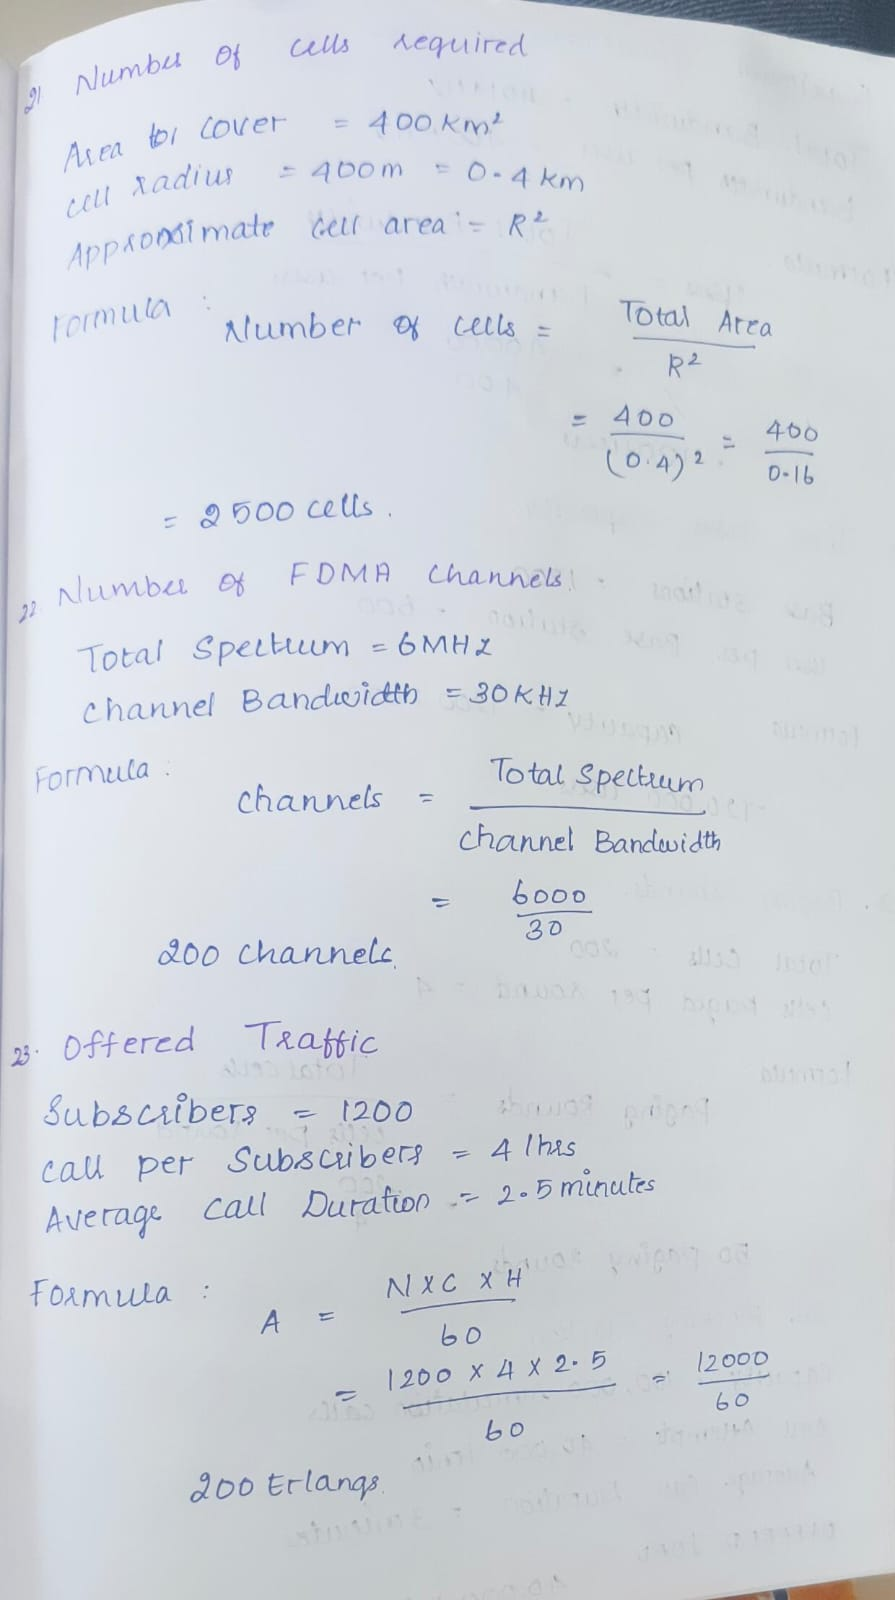 21 Number of cells required
Area to cover = 400 km²
cell radius = 400m = 0.4 km
Approximate cell area = R²
Formula : Number of cells = Total Area / R²
= 400 / (0.4)² = 400 / 0.16
= 2500 cells.
22. Number of FDMA Channels.
Total Spectrum = 6MHz
channel Bandwidth = 30KHz
Formula : channels = Total Spectrum / channel Bandwidth
= 6000 / 30
200 channels.
23. Offered Traffic
Subscribers = 1200
call per Subscribers = 4 /hrs
Average Call Duration = 2.5 minutes
Formula : A = N x C x H / 60
= 1200 x 4 x 2.5 / 60 = 12000 / 60
200 Erlangs.